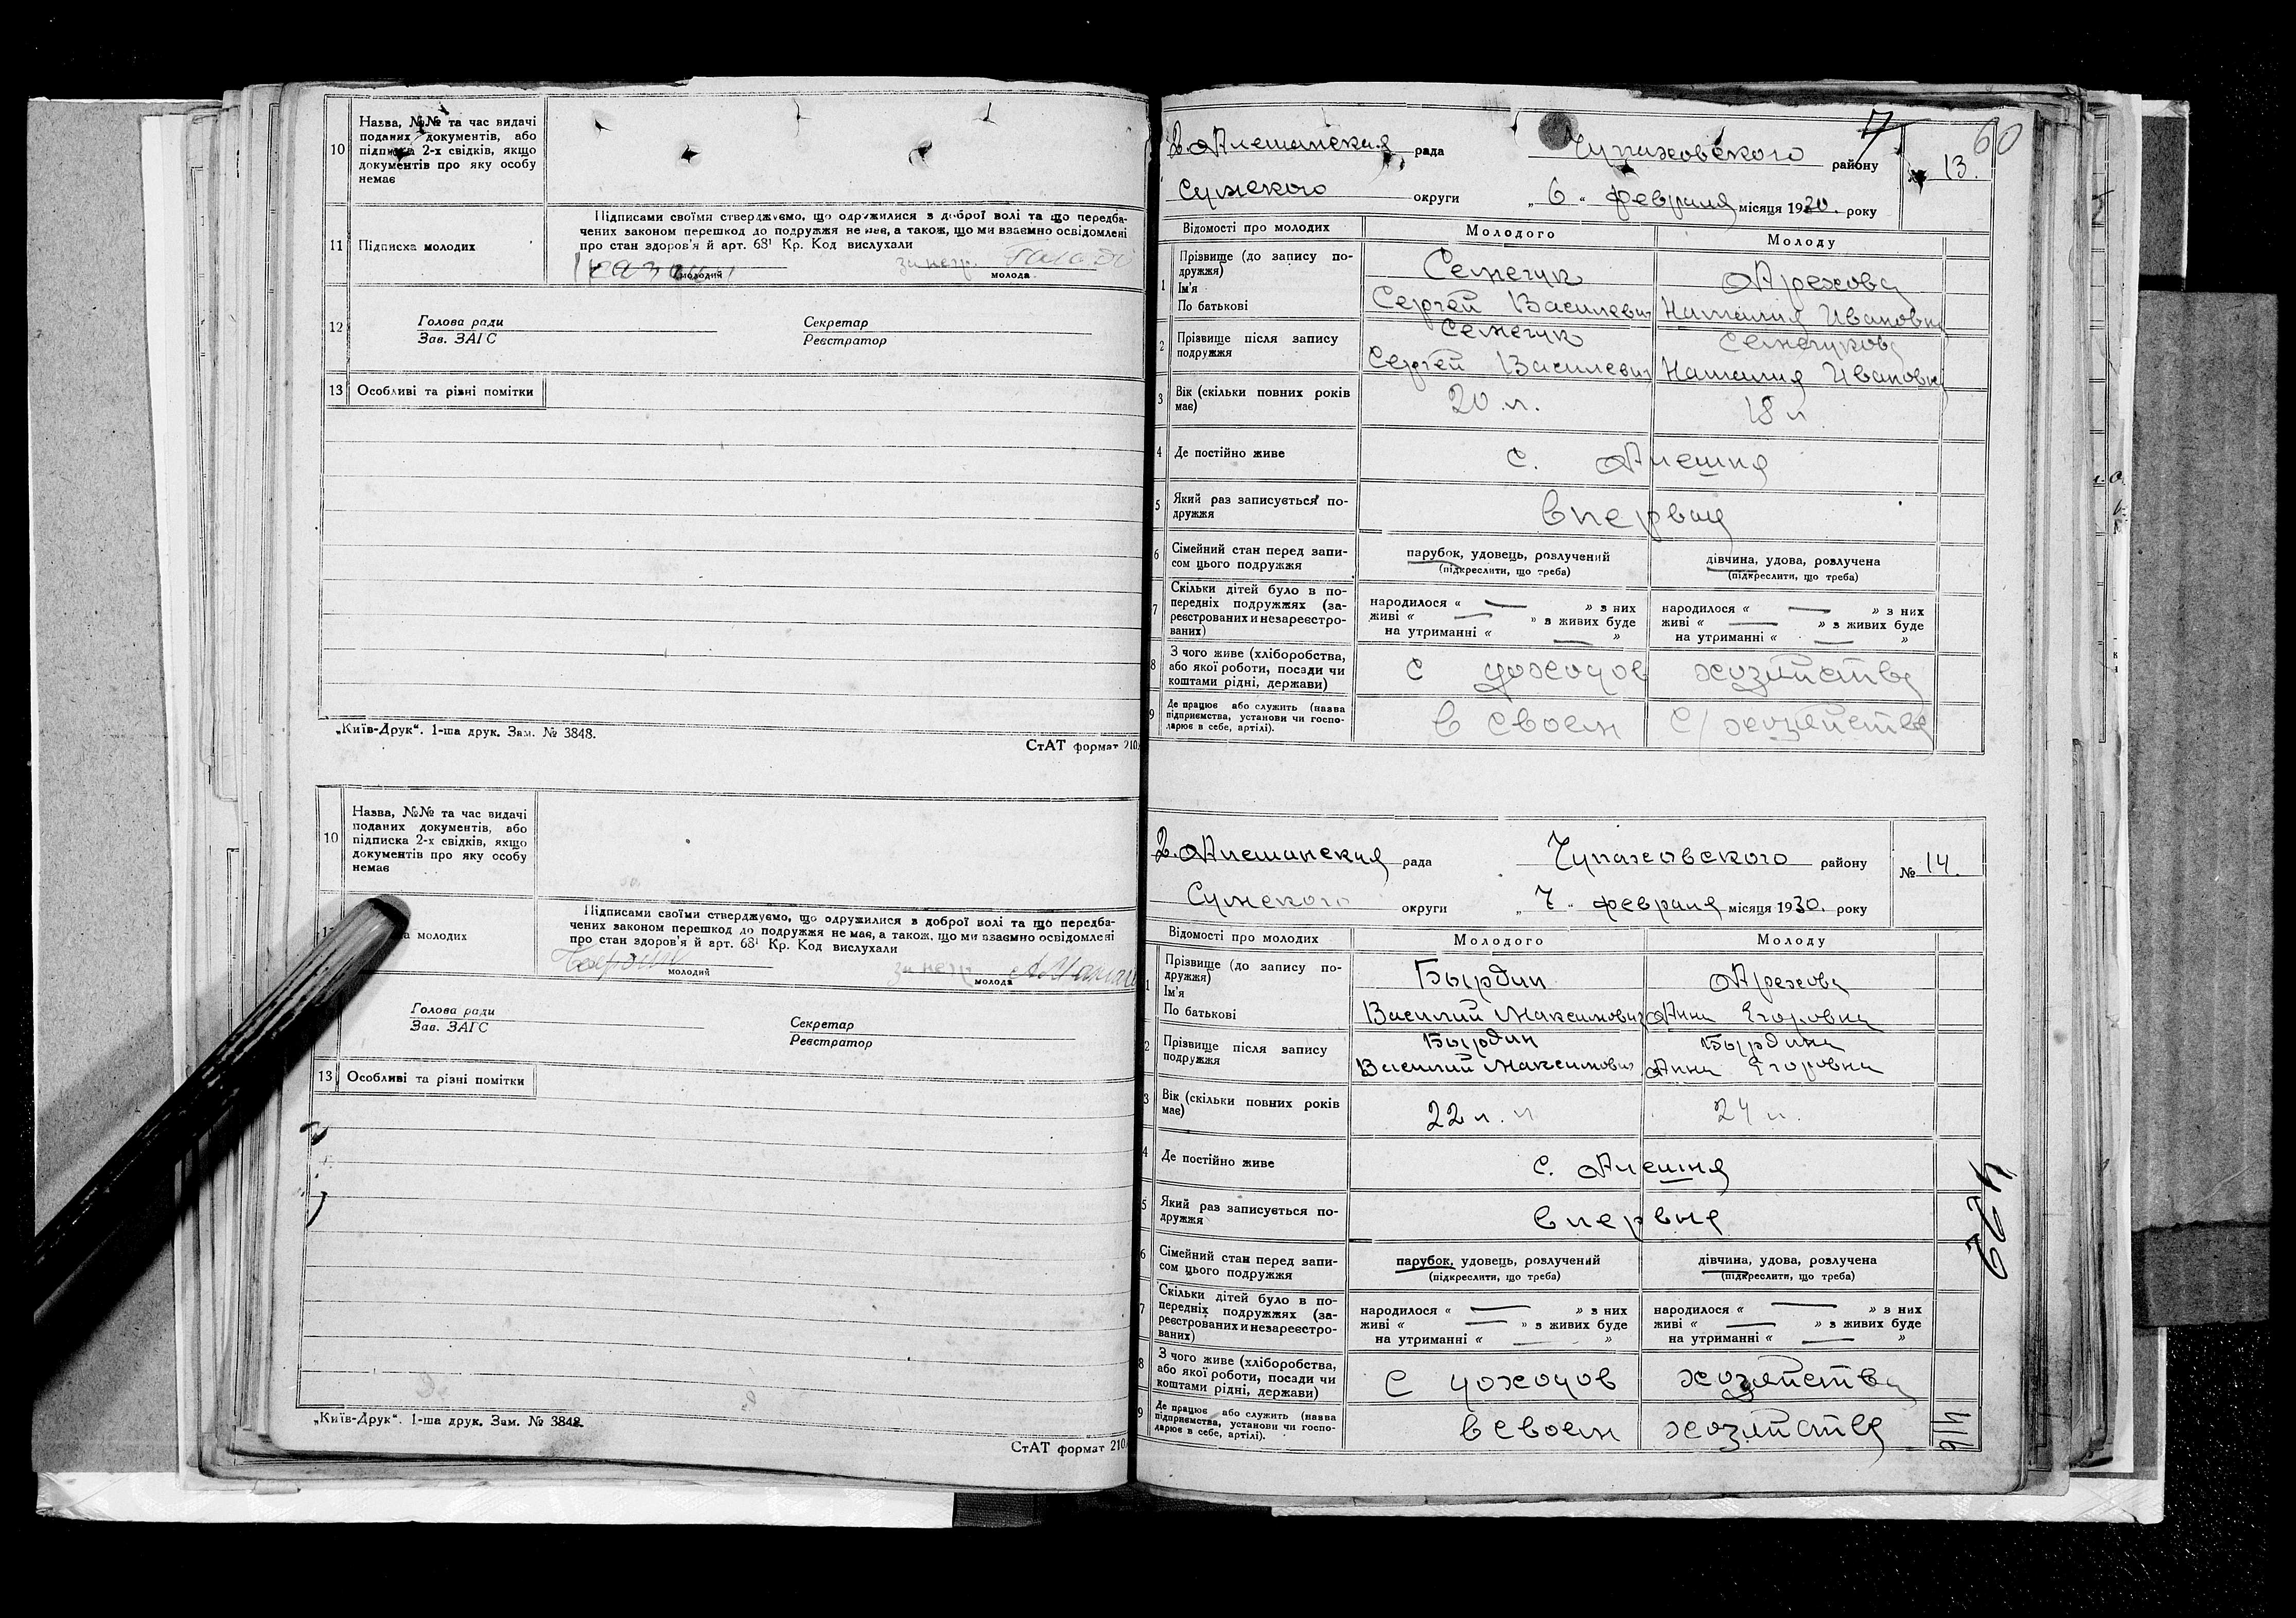 10 Назва, №№ та час видачі
поданих документів, або
підписка 2-х свідків, якщо
документів про яку особу
немає
11 Підписка молодих
Підписами своїми стверджуємо, що одружилися з доброї волі та що передба-
чених законом перешкод до подружжя не має, а також, що ми взаємно освідомлені
про стан здоров'я й арт. 68¹ Кр. Код вислухали
молодий за негр. молода
12 Голова ради Секретар
Зав. ЗАГС Реєстратор
13 Особливі та різні помітки
„Київ-Друк“. 1-ша друк. Зам. № 3848.
СтАТ формат 210
10 Назва, №№ та час видачі
поданих документів, або
підписка 2-х свідків, якщо
документів про яку особу
немає
а молодих
Підписами своїми стверджуємо, що одружилися з доброї волі та що передба-
чених законом перешкод до подружжя не має, а також, що ми взаємно освідомлені
про стан здоров'я й арт. 68¹ Кр. Код вислухали
молодий за негр. молода
Голова ради Секретар
Зав. ЗАГС Реєстратор
13 Особливі та різні помітки
„Київ-Друк“. 1-ша друк. Зам. № 3848.
СтАТ формат 210
7 60
2. Алешанская рада Чупаховского району № 13.
Сумского округи „6“ февраля місяця 1930. року
Відомості про молодих Молодого Молоду
1 Прізвище (до запису по-
дружжя) Семегук Арехова
Ім'я
По батькові Сергей Василевич Наталия Ивановна
2 Прізвище після запису
подружжя Семегук Семегукова
Сергей Василевич Наталия Ивановна
3 Вік (скільки повних років
має) 20 л. 18 л
4 Де постійно живе с. Алешня
5 Який раз записується по-
дружжя впервые
6 Сімейний стан перед запи-
сом цього подружжя
парубок, удовець, розлучений дівчина, удова, розлучена
(підкреслити, що треба) (підкреслити, що треба)
7 Скільки дітей було в по-
передніх подружжях (за-
реєстрованих и незареєстро-
ваних)
народилося « — » з них народилося « — » з них
живі « — » з живих буде живі « — » з живих буде
на утриманні « — » на утриманні « — »
8 З чого живе (хліборобства,
або якої роботи, посади чи
коштами рідні, держави) с доходов хозяйства
9 Де працює або служить (назва
підприємства, установи чи госпо-
дарює в себе, артілі). в своем с/хозяйстве
2. Алешанская рада Чупаховского району № 14.
Сумского округи „7“ февраля місяця 1930. року
Відомості про молодих Молодого Молоду
1 Прізвище (до запису по-
дружжя) Бырдин Арехова
Ім'я
По батькові Василий Максимович Анна Егоровна
2 Прізвище після запису
подружжя Бырдин Бырдина
Василий Максимович Анна Егоровна
3 Вік (скільки повних років
має) 22 л. 24 л.
4 Де постійно живе с. Алешня
5 Який раз записується по-
дружжя впервые
6 Сімейний стан перед запи-
сом цього подружжя
парубок, удовець, розлучений дівчина, удова, розлучена
(підкреслити, що треба) (підкреслити, що треба)
7 Скільки дітей було в по-
передніх подружжях (за-
реєстрованих и незареєстро-
ваних)
народилося « — » з них народилося « — » з них
живі « — » з живих буде живі « — » з живих буде
на утриманні « — » на утриманні « — »
8 З чого живе (хліборобства,
або якої роботи, посади чи
коштами рідні, держави) с доходов хозяйства
9 Де працює або служить (назва
підприємства, установи чи госпо-
дарює в себе, артілі). в своем хозяйстве